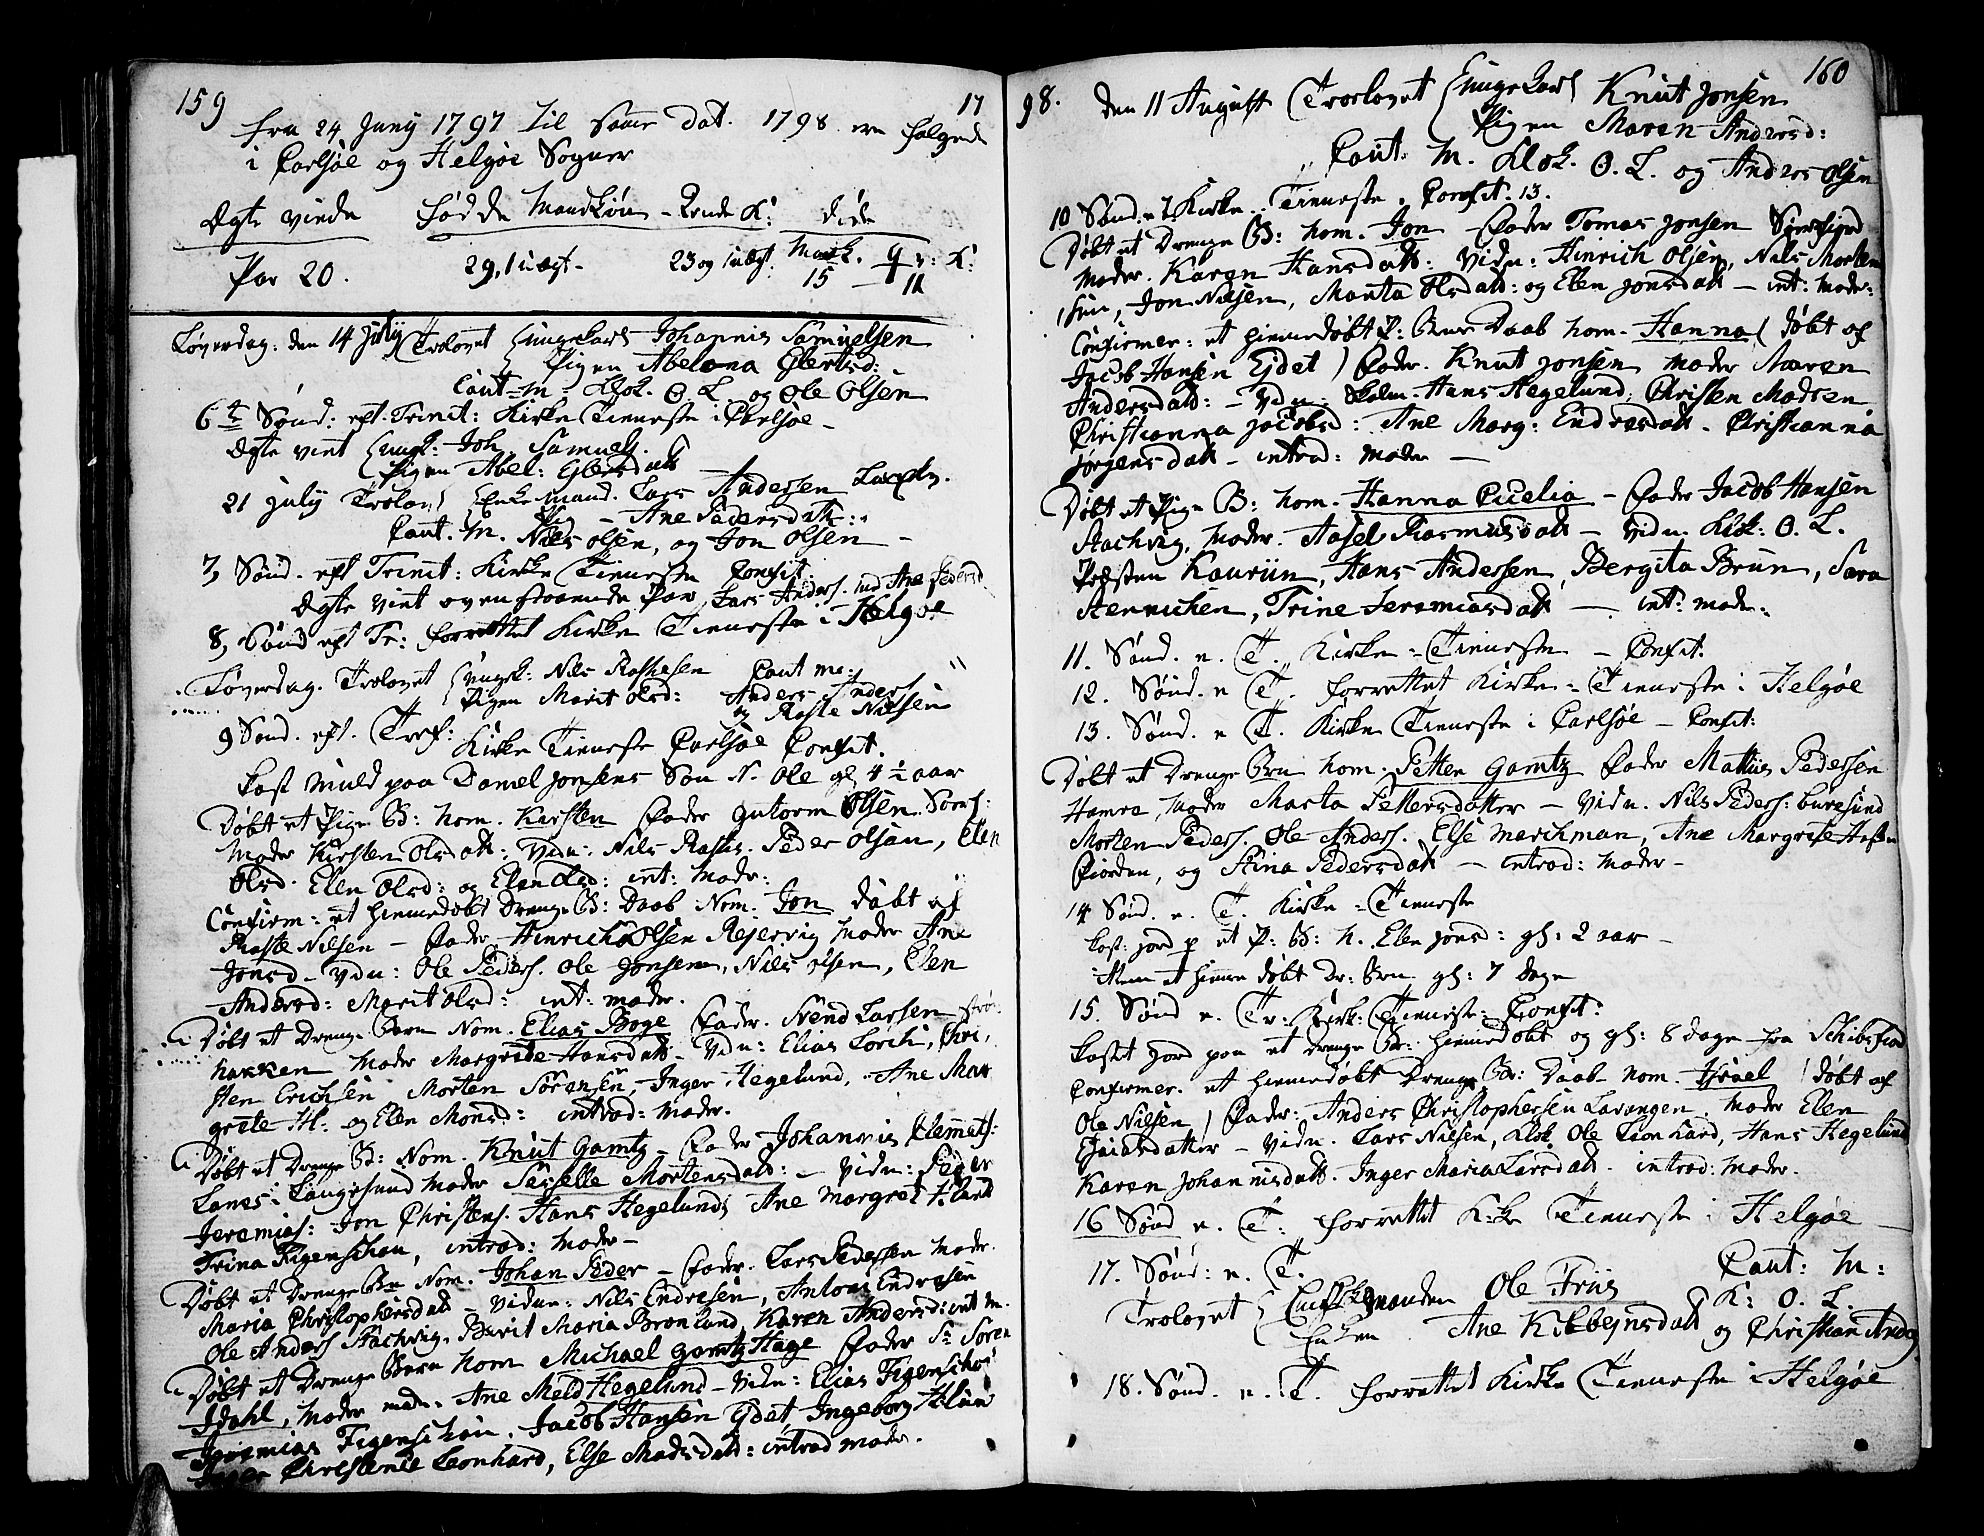 159
17
fra 24 Juny 1797 til samme dat. 1798 ere følgende
i Carlsøe og Helgøe Sogner
Ægte viede
fødde Mandkiøn - Qvinde K:
døde
Par 20.
29, 1 uægt -
23 og 1 uægt.
Mank. 15
Qv: K: 11
Løverdag: den 14 July Trolovet Ungekarl Johannis Samuelsen
Pigen Abelona Ejlertsd:
Caut. M. Klok. O. L. og Ole Olsen
6te Sønd: eft. Trinit: Kirke Tieneste i Carlsøe -
Ægte viet Ungk: Joh. Samuels.
Pigen Abel: Ejlersdatt
21 July Trolov Enkemand Lars Andersen
Pig - Ane Pedersdatt:
Caut. M. Nils Olsen, og Jon Olsen -
7, Sønd. eft Trinit: Kirke Tieneste Confit.
Ægte viet ovenstaaende Par Lars Anders. med Ane Pedersd
8, Sønd eft Tr: forrettet Kirke Tieneste i Helgøe
Løverdag. Trolovet Ungk: Nils Rastesen Caut me:
Pigen Marit Olsd: Anders Anders
og Raste Nilsen
9 Sønd. eft. Tref: Kirke Tieneste Carlsøe Confit.
Kast Muld paa Daniel Jonsens Søn N. Ole gl 4 ½ aar
Døbt et Pige B: nom. Kirsten Fader Gutorm Olsen
Moder Kirsten Olsdatt: Vidn: Nils Rastes. Peder Olsen, Elen
Olsd. Elen Olsd: og Elen Olsd: int: Modr:
Confirm: et hiemedøbt Drenge B: Daab Nom. Jon døbt af
Raste Nilsen - Fader Hinrich Olsen Rejervig Moder Ane
Jonsd - Vdn: Ole Peders. Ole Jonsen, Nils Olsen, Elen
Andersd: Marit Olsd: int: Moder.
Døbt et Drenge Barn Nom. Elias Boge Fader. Svend Larsen
hakken Moder Margrete Hansdatt - Vidn: Elias Lorch, Chri,
sten Erichsen Morten Sørensen, Inger Hegelund, Ane Mar
grete H: og Elen Monsd: introd: Moder.
Døbt et Drenge B: Nom. Knut Gamtz - Fader Johannis Clemets:
Lanes i Langesund Moder Seselle Mortensdatt: - Vidn: Peder
Jeremias: Jon Christens. Hans Hegelund, Ane Margret
Trina Figenschou, introd: Moder -
Døbt et Drenge Bn Nom. Johan Peder - Fader. Lars Pedersen Moder.
Maria Christophersdatt - Vidne: Nils Endresen, Anton Endresen
Ole Anders Stachvig. Berit Maria Brønlund, Karen Andersd: int M.
Døbt et Drenge Barn Nom Michael Gamtz Hage Fader Sr Søren
Dahl, Moder Mad. Ane Meld Hegelund - Vidn: Elias Figenschou
Jeremias Figenschou, Jacob Hansen Ejdet, Ingeborg
Christence Leonhard, Else Madsdatt: introd Moder.
98.
160
den 11 August Trolovet Ungekarl Knut Jonsen
Pigen Maren Andersd:
Caut. M. Klok. O. L. og Anders Olsen
10 Sønd. e T. Kirke Tieneste. Confit. 13.
Døbt et Drenge B: nom. Jon - Fader Tomas Jonsen
Moder. Karen Hansdatt: Vidn: Hinrich Olsen, Nils Morten
sen, Jon Nilsen, Marita Olsdatt: og Elen Jonsdatt - int: Moder:
Confirmer: et hiemedøbt P: Bns Daab nom. Hanna (døbt af
Jacob Hansen Ejdet) Fader. Knut Jonsen Moder Maren
Andersdatt: - Vdn: Skolm. Hans Hegelund, Christen Madsen
Christianna Jacobsd: Ane Marg: Endresdatt. Christianna
Jørgensdatt - introd: Moder -
Døbt et Pige B: nom. Hanna Cicelia - Fader Jacob Hansen
Stachvig, Moder. Aasel Rasmusdatt - Vidn. Klok: O. L.
Præsten Kauriin, Hans Andersen, Bergita Brun, Sara
Hennichen, Trine Jeremiasdatt - int: Moder.
11. Sønd. e. T. Kirke Tieneste - Confit:
12. Sønd. e T. forrettet Kirke Tieneste i Helgøe
13. Sønd. e T. Kirke Tieneste i Carlsøe - Confit:
Døbt et Drenge Bn nom. Petter Gamtz Fader Mattis Pedersen
Hamre, Moder Marta Pettersdatter - Vidn. Nils Peders: Buresund
Morten Peders. Ole Anders. Else Marchman, Ane Margrete
Fiorden, og Stina Pedersdatt - introd: Moder -
14 Sønd. e. T. Kirke Tieneste
Kast: Jord p et P: B: N. Elen Jonsd: gl: 2 aar -
item et hieme døbt Dr: Bn gl: 7 Dage
15. Sønd e. Tr: Kirk: Tieneste - Confit:
Kastet Jord paa et Drenge B: hiemedøbt og gl: 8 dage fra Schibsfiord
Confirmer. et hiemedøbt Drenge B: Daab nom. Israel (døbt af
Ole Nilsen) Fader: Anders Christophersen Lavangen. Moder Elen
Esaiasdatter - Vidn. Lars Nilsen, Klok. Ole Lionhard, Hans Hegelund
Karen Johannisdatt. Inger Maria Larsdatt. introd: Moder.
16 Sønd e. T: forrettet Kirke Tieneste i Helgøe
17. Sønd: e. T.
Caut: M:
Trolovet Enkemanden Ole Friis K: O. L.
Enken Ane Kilbejnsdatt og Christian
18. Sønd. e. T. forrettet Kirke Tieneste i Helgøe